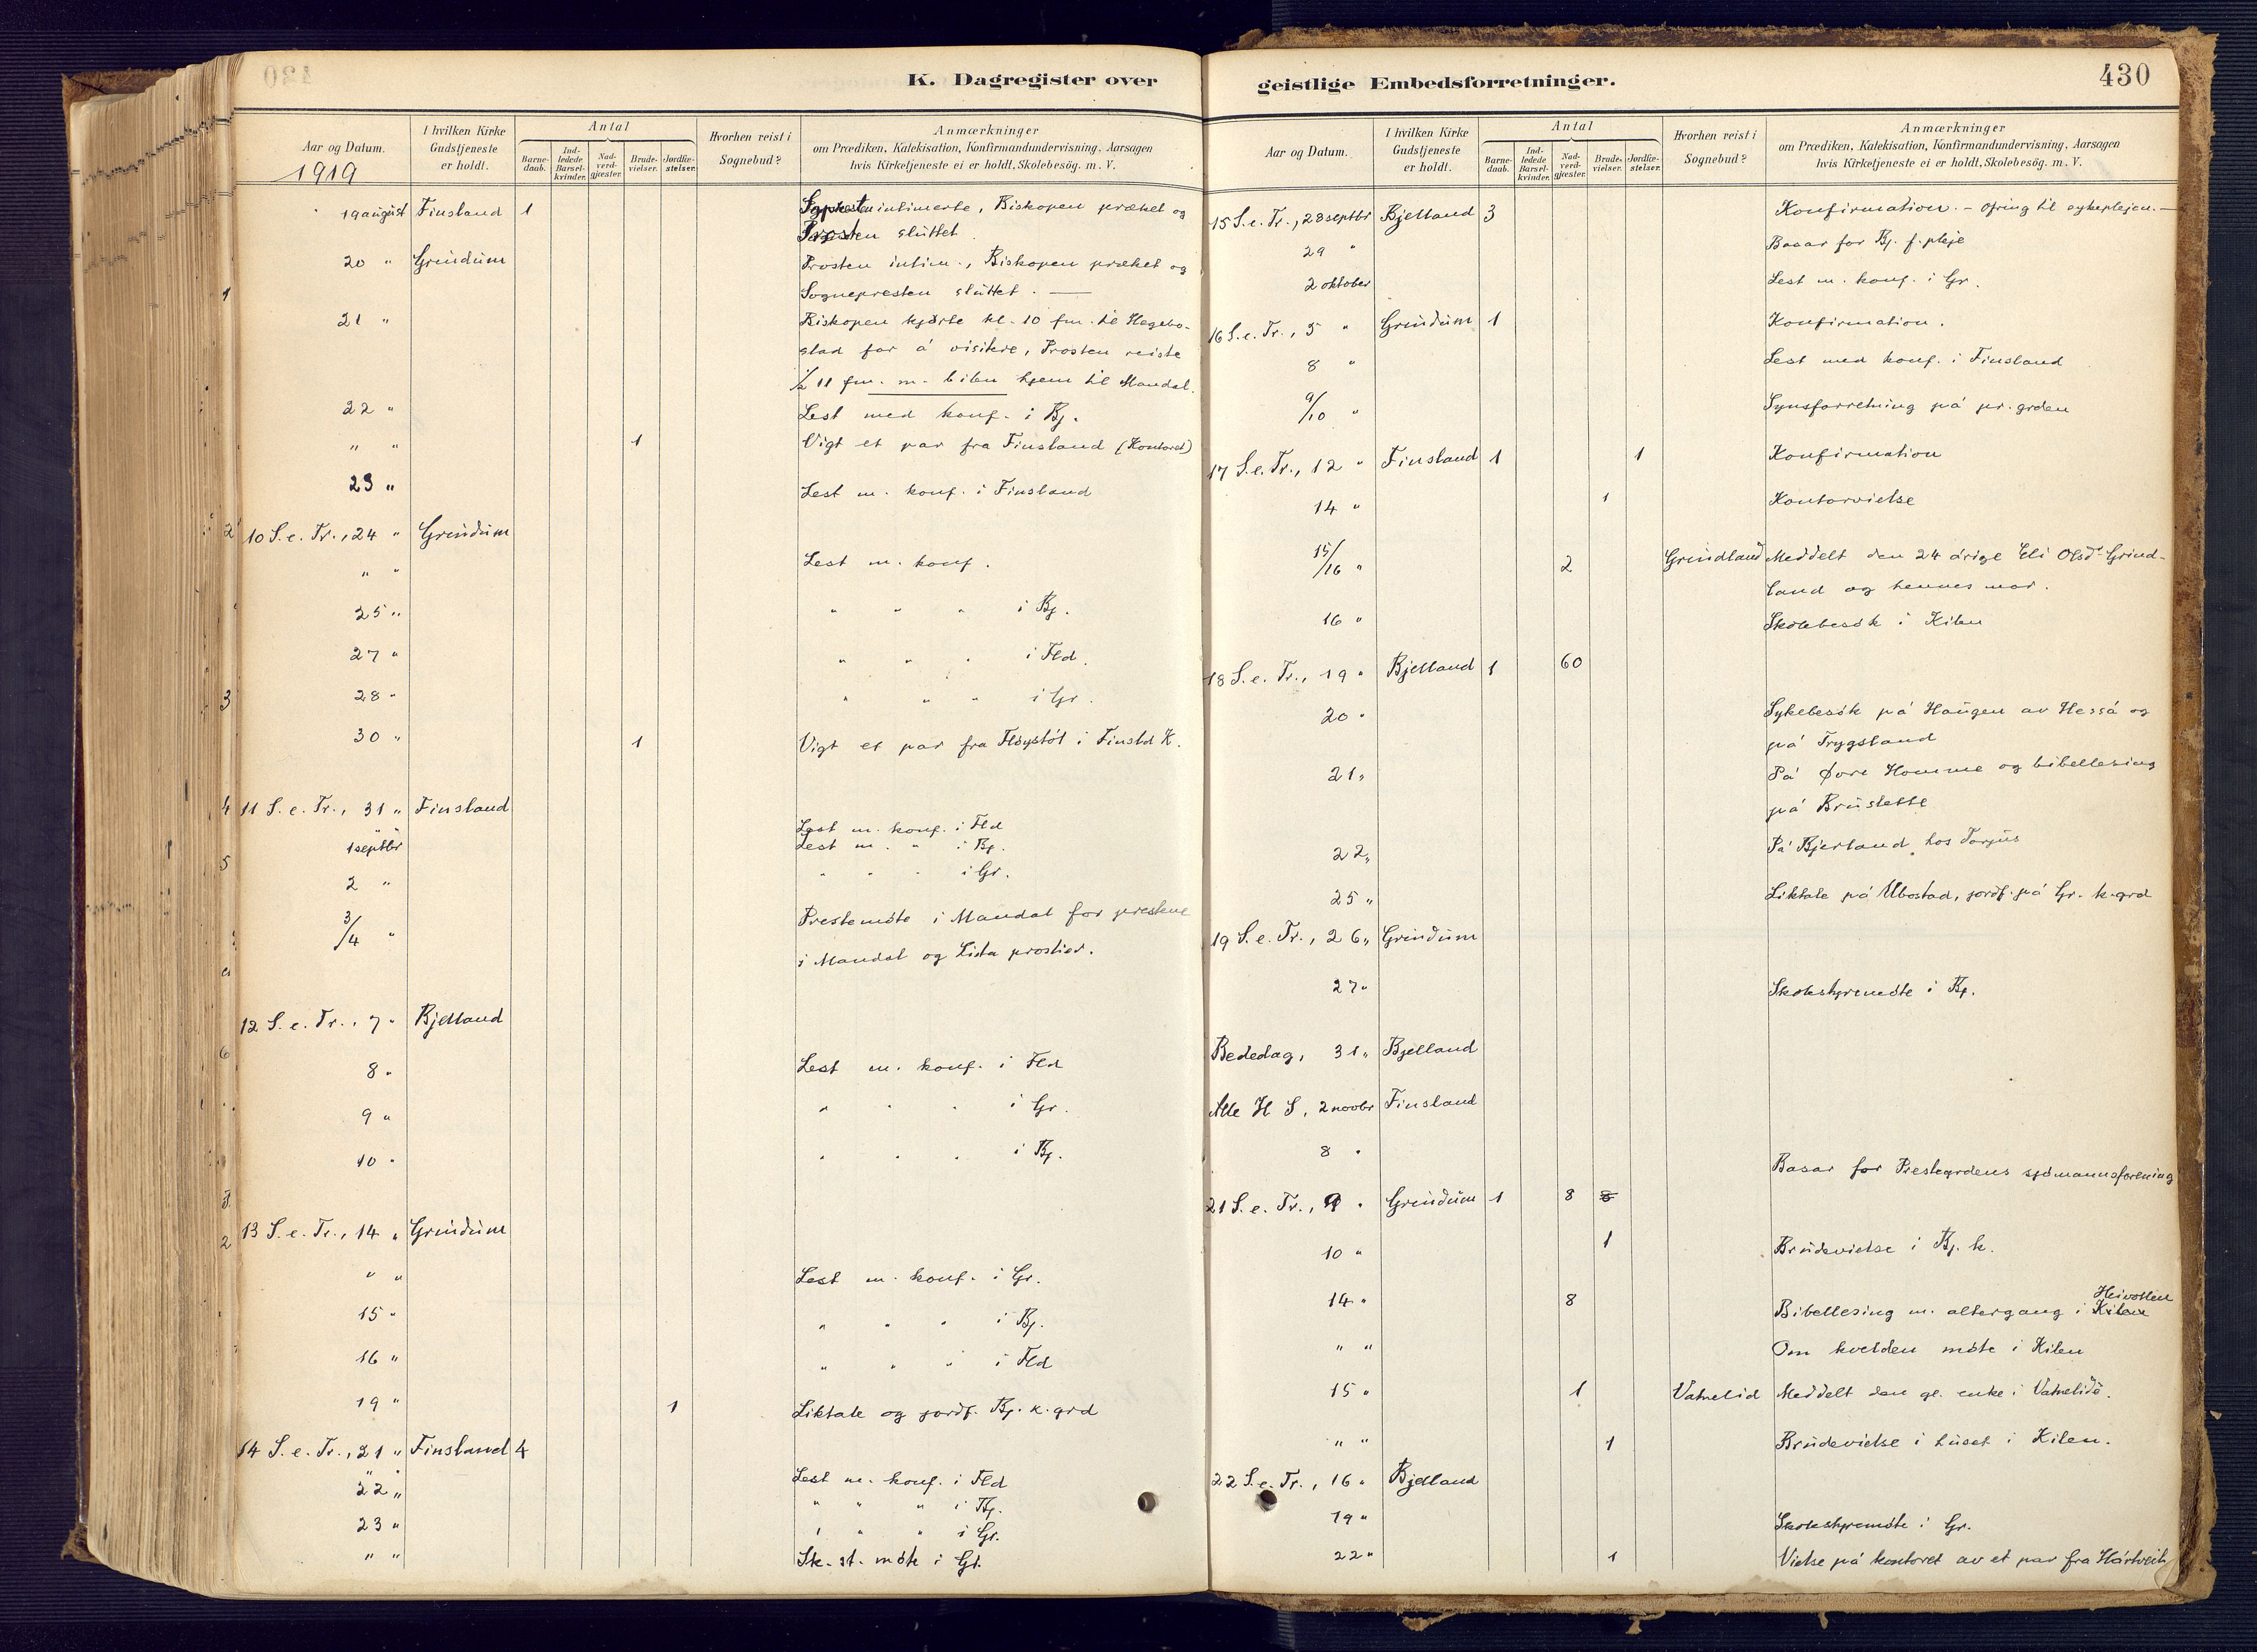 K. Dagregister over
Aar og Datum.
1919
I hvilken Kirke Gudstjeneste er holdt.
Antal
Barne-daab.
Ind-ledede Barsel-kvinder.
Nad-verd-gjæster.
Brude-vielser.
Jordfæ-stelser.
Hvorhen reist i Sognebud?
Anmærkninger
om Prædiken, Katekisation, Konfirmandundervisning, Aarsagen
hvis Kirketjeneste ei er holdt, Skolebesög. m. V.
19 august Finsland 1 intimerte, Biskopen præket og
Prosten sluttet.
20 " Grindum Prosten intim., Biskopen præket og
Sognepresten sluttet. —
21 " Biskopen kjørte kl. 10 fm. til Hægebo-
stad for å visitere, Prosten reiste
½ 11 fm. m. bilen hjem til Mandal.
22 " Lest med konf. i Bj.
" " 1 Vigt et par fra Finsland (Kontoret)
23 " Lest m. konf. i Finsland
10 S. e. Tr., 24 " Grindum
" " Lest m. konf.
25 " " " " i Bj.
27 " " " " i Fld.
28 " " " " i Gr.
30 " 1 Vigt et par fra Fløystøl i Finsld K.
11 S. e. Tr., 31 " Finsland
" " Lest m. konf. i Fld
1 septbr Lest m. " i Bj.
2 " " " " i Gr.
3/4 " Prestemøte i Mandal for prestene
i Mandal og Lista prostier.
12 S. e. Tr., 7 " Bjelland
8 " Lest m. konf. i Fld
9 " " " " i Gr.
10 " " " " i Bj.
13 S. e. Tr., 14 " Grindum
" " Lest m. konf. i Gr.
15 " " " " i Bj.
16 " " " " i Fld
19 " 1 Liktale og jordf. Bj. k. grd
14 S. e. Tr., 21 " Finsland 4
" " Lest m. konf. i Fld
22 " " " " i Bj.
23 " " " " i Gr.
" " Sk. st. møte i Gr.
geistlige Embedsforretninger.
430
Aar og Datum.
I hvilken Kirke Gudstjeneste er holdt.
Antal
Barne-daab.
Ind-ledede Barsel-kvinder.
Nad-verd-gjæster.
Brude-vielser.
Jordfæ-stelser.
Hvorhen reist i Sognebud?
Anmærkninger
om Prædiken, Katekisation, Konfirmandundervisning, Aarsagen
hvis Kirketjeneste ei er holdt, Skolebesög. m. V.
15 S. e. Tr., 28 septbr Bjelland 3 Konfirmation. – Ofring til sykeplejen. —
29 " Basar for Bj. f. pleje
2 oktober Lest m. konf. i Gr.
16 S. e. Tr., 5 " Grindum 1 Konfirmation.
8 " Lest med konf. i Finsland
9/10 " Synsforretning på pr. grden
17 S. e. Tr., 12 " Finsland 1 1 Konfirmation
14 " 1 Kontorvielse
15/16 " 2 Grindland Meddelt den 24 årige Eli Olsd. Grind-
land og hennes mor.
16 " Skolebesøk i Kilen
18 S. e. Tr., 19 " Bjelland 1 60
20 " Sykebesøk på Haugen av Hesså og
på Trygsland
21 " På Øvre Homme og bibellesing
på Bruslette
22 " På Bjerland hos Torjus
25 " Liktale på Ubostad, jordf. på Gr. k. grd
19 S. e. Tr., 26 " Grindum
27 " Skolestyremøte i Bj.
Bededag, 31 " Bjelland
Alle H S, 2 novbr Finsland
8 " Basar for Prestegrdens sjømannsforening
21 S. e. Tr., 9 " Grindum 1 8 8
10 " 1 Brudevielse i Bj. k.
14 " 8 Bibellesing m. altergang i Kilen Heivollen
" " Om kvelden møte i Kilen
15 " 1 Vatnelid Meddelt den gl. enke i Vatnelidi.
" " 1 Brudevielse i huset i Kilen.
22 S. e. Tr., 16 " Bjelland
19 " Skolestyremøte i Gr.
22 " 1 Vielse på kontoret av et par fra Hårtveit